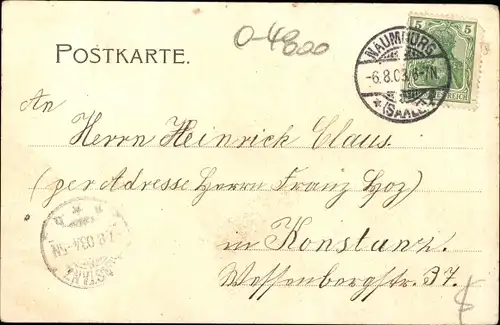 0-4800
POSTKARTE.
5
5
REICH
NAUMBURG
-6.8.03.6-7N.
* (SAALE)
An
Herrn Heinrich Claus.
(per Adresse Herrn Franz Hoz)
in Konstanz.
Wessenbergstr. 37.
7.8.03.4-5N